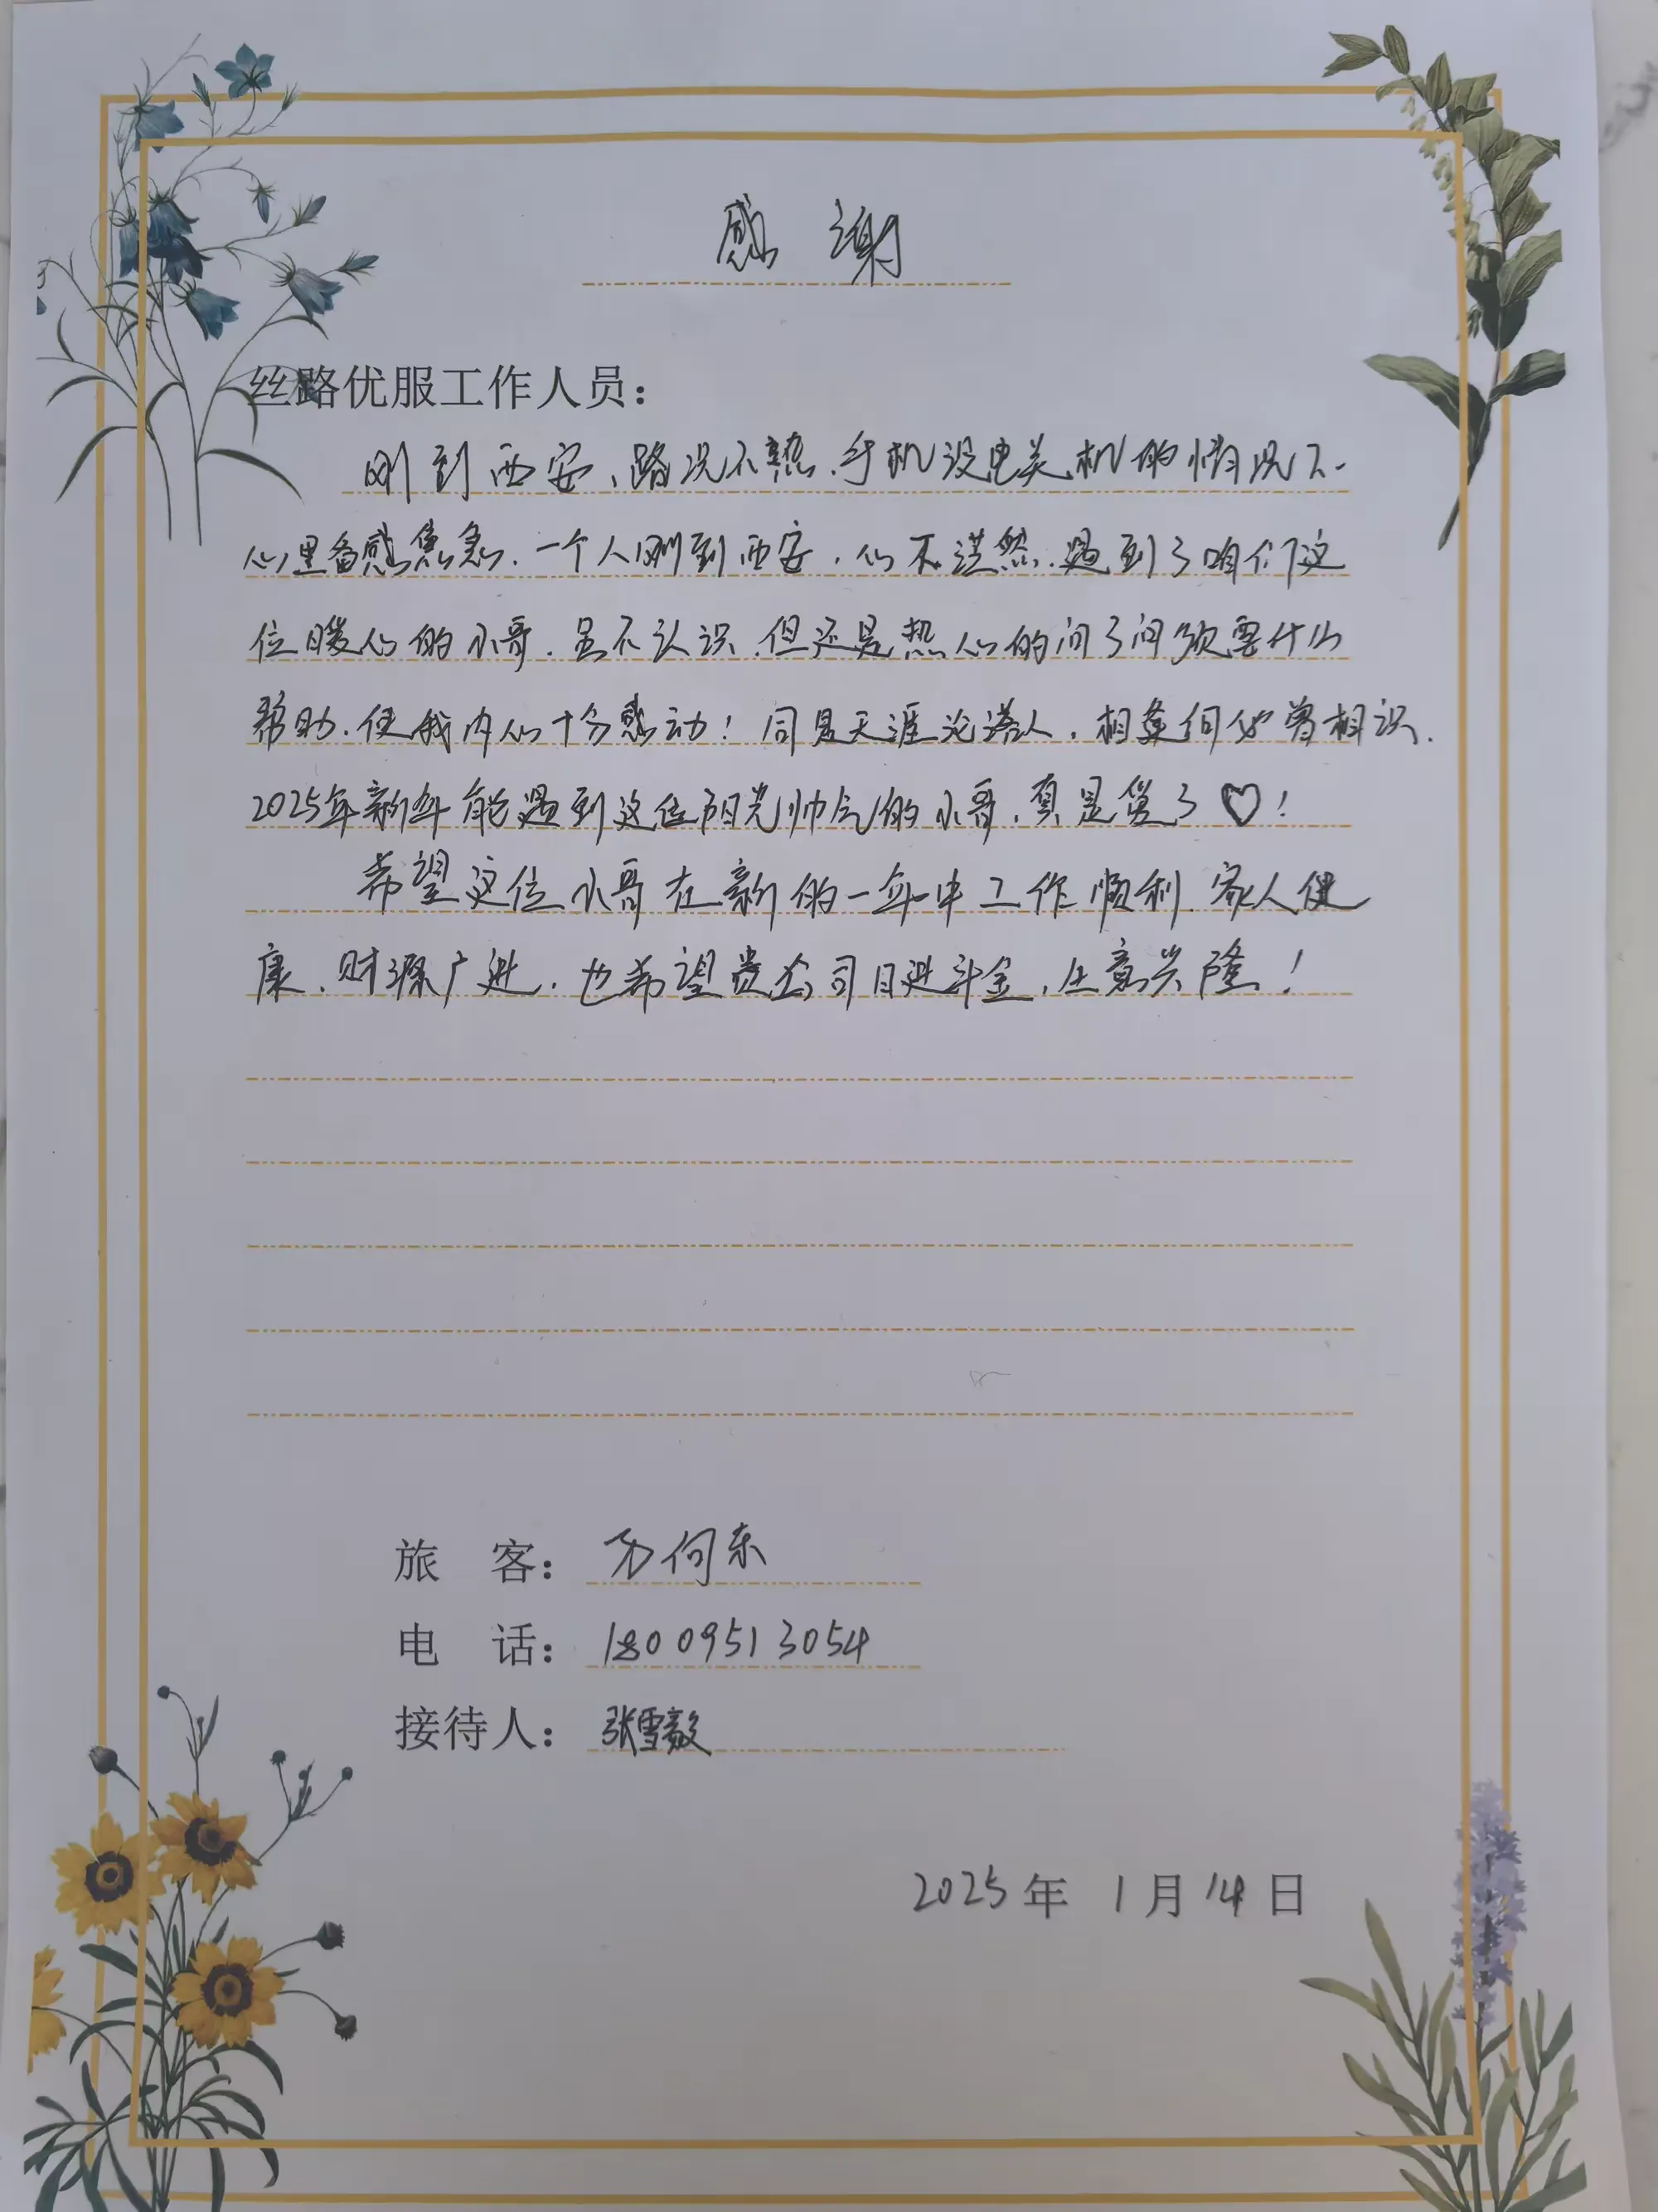 感谢
丝路优服工作人员：
刚到西安、路况不熟、手机没电关机的情况下、
心里备感焦急、一个人刚到西安，心不茫然、遇到了咱们这
位暖心的小哥、虽不认识、但还是热心的问了问须要什么
帮助、使我内心十分感动！同是天涯沦落人，相逢何必曾相识、
2025年新年能遇到这位阳光帅气的小哥、真是赞了♡！
希望这位小哥在新的一年中工作顺利、家人健
康、财源广进，也希望贵公司日进斗金、生意兴隆！
旅 客： 何东
电 话： 18009513054
接待人： 张雪毅
2025年 1月14日